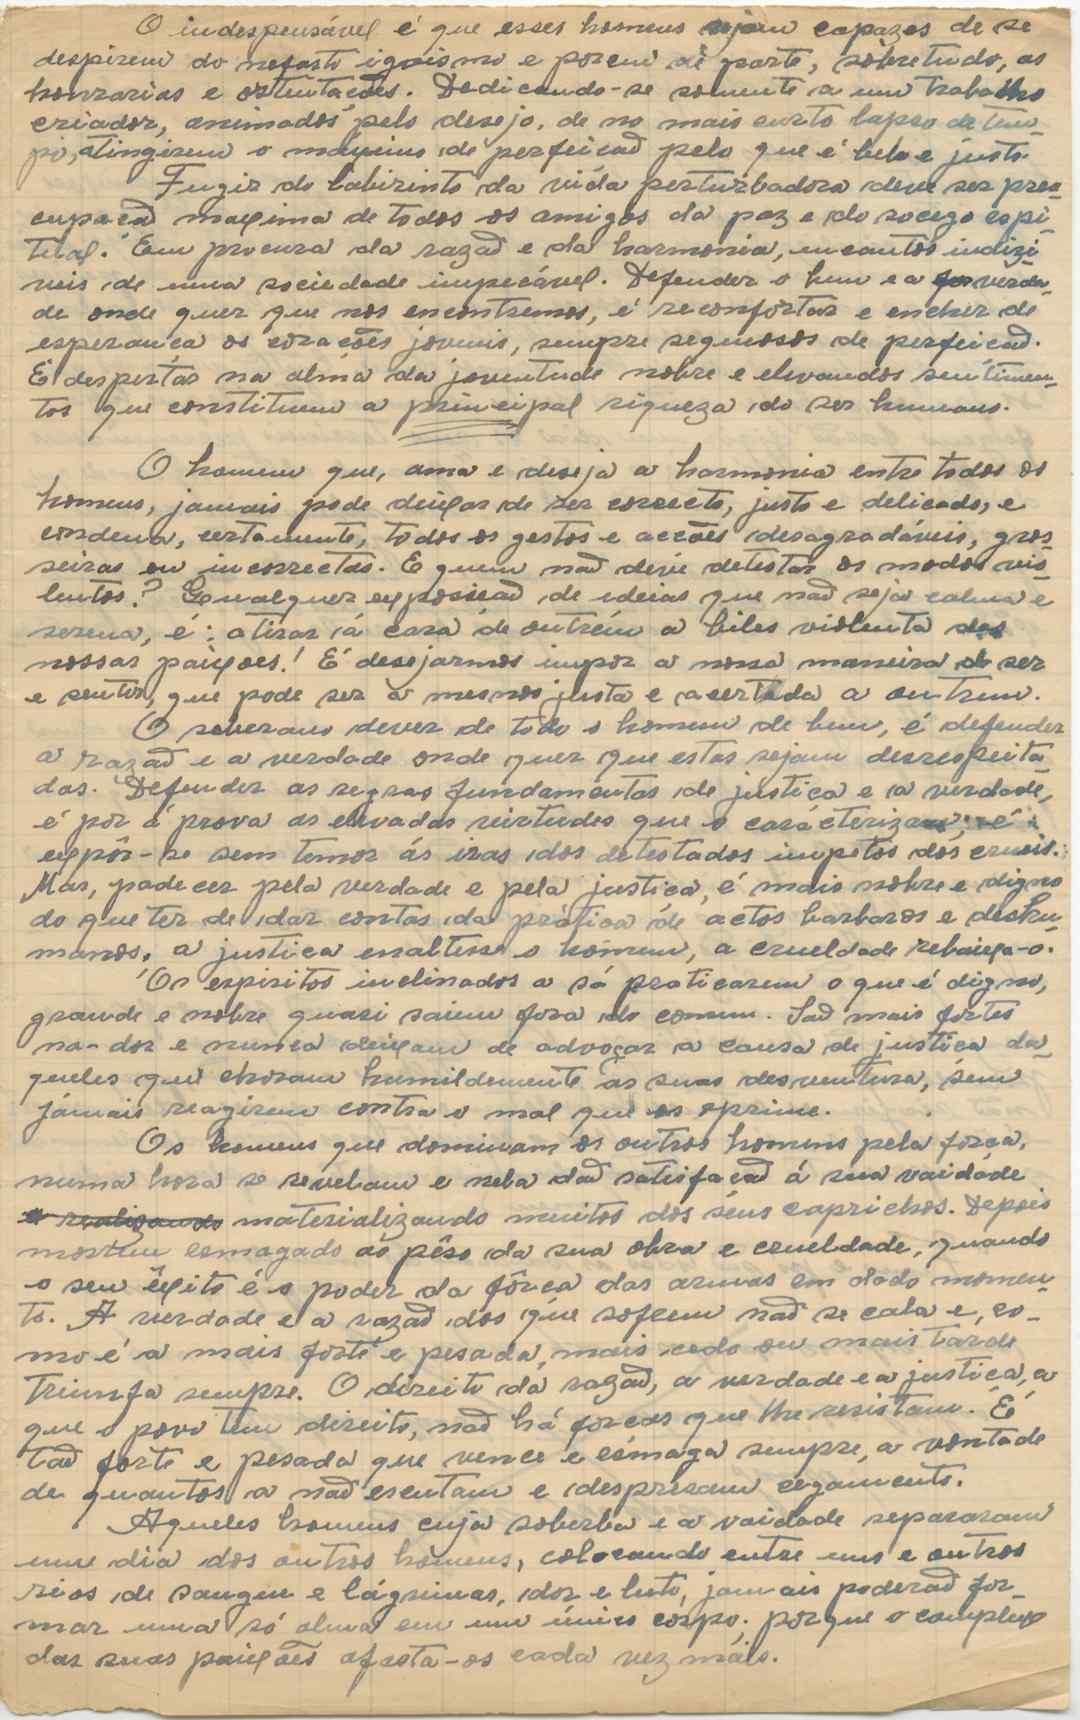 O indespensável é que esses homens sejam capazes de se
despirem do nefasto igoismo e porem de parte, sôbretudo, as
honrarias e ostentações. Dedicando-se somente a um trabalho
criador, animados pelo desejo, de no mais curto lapso de tem-
po, atingirem o máximo de perfeição pelo que é belo e justo.
Fugir do labirinto da vida perturbadora deve ser preo-
cupação maxima de todos os amigos da paz e do socego espi-
tual. Em procura da razão e da harmonia, encantos indizi
veis de uma sociedade impecável. Defender o bem e a verda-
de onde quer que nos encontremos, é reconfortar e encher de
esperança os corações jovenis, sempre sequosos de perfeição.
É despertar na alma da joventude nobre e elevandos sentimen-
tos que constituem a principal riqueza do ser humano.
O homem que, ama e deseja a harmonia entre todos os
homens, jamais pode deixar de ser correcto, justo e delicado, e
condena, certamente, todos os gestos e acções desagradáveis, gros-
seiras ou incorrectas. E quem não deve detestar os modos vio-
lentos? Qualquer exposição de ideias que não seja calma e
serena, é: atirar á cara de outrém a biles violenta das
nossas paixoes! É desejarmos impor a nossa maneira de ser
e sentir, que pode ser a menos justa e acertada a outrem.
O soberano dever de todo o homem de bem, é defender
a razão e a verdade onde quer que estas sejam desrespeita-
das. Defender as regras fundamentas de justiça e a verdade,
é pôr á prova as elevadas virtudes que o carácterizam, é
expôr-se sem temor ás iras dos detestados impetos dos crueis.
Mas, padecer pela verdade e pela justiça, é mais nobre e digno
do que ter de dar contas da prática de actos barbaros e deshu-
manos, a justiça enaltesse o homem, a crueldade rebaixa-o.
Os espiritos inclinados a só praticarem o que é digno,
grande e nobre quasi saiem fora do comum. São mais fortes
na dor e nunca deixam de advogar a causa de justiça da-
queles que choram humildemente as suas desventura, sem
jámais reagirem contra o mal que os oprime.
Os homens que dominam os outros homens pela força,
numa hora se revelam e nela dão satisfação á sua vaidade
e realizando materializando muitos dos séus caprichos. Depois
morrem esmagado ao pêso da sua obra e crueldade, quando
o seu êxito é o poder da fôrça das armas em dado momen
to. A verdade e a razão dos que sofrem não se cala e, co-
mo é a mais forte e pesada, mais cedo ou mais tarde
triunfa sempre. O direito da razão, a verdade e a justiça, a
que o povo tem direito, não há forças que lhe resistam. É
tão forte e pesada que vence e esmaga sempre, a vontade
de quantos a não escutam e despresam cegamente.
Aqueles homens cuja soberba e a vaidade separaram
um dia dos outros homens, colocando entre uns e outros
rios de sangue e lágrimas, dor e luto, jamais poderão for-
mar uma só alma em um único corpo; porque o complexo
das suas paixões afasta-os cada vez mais.